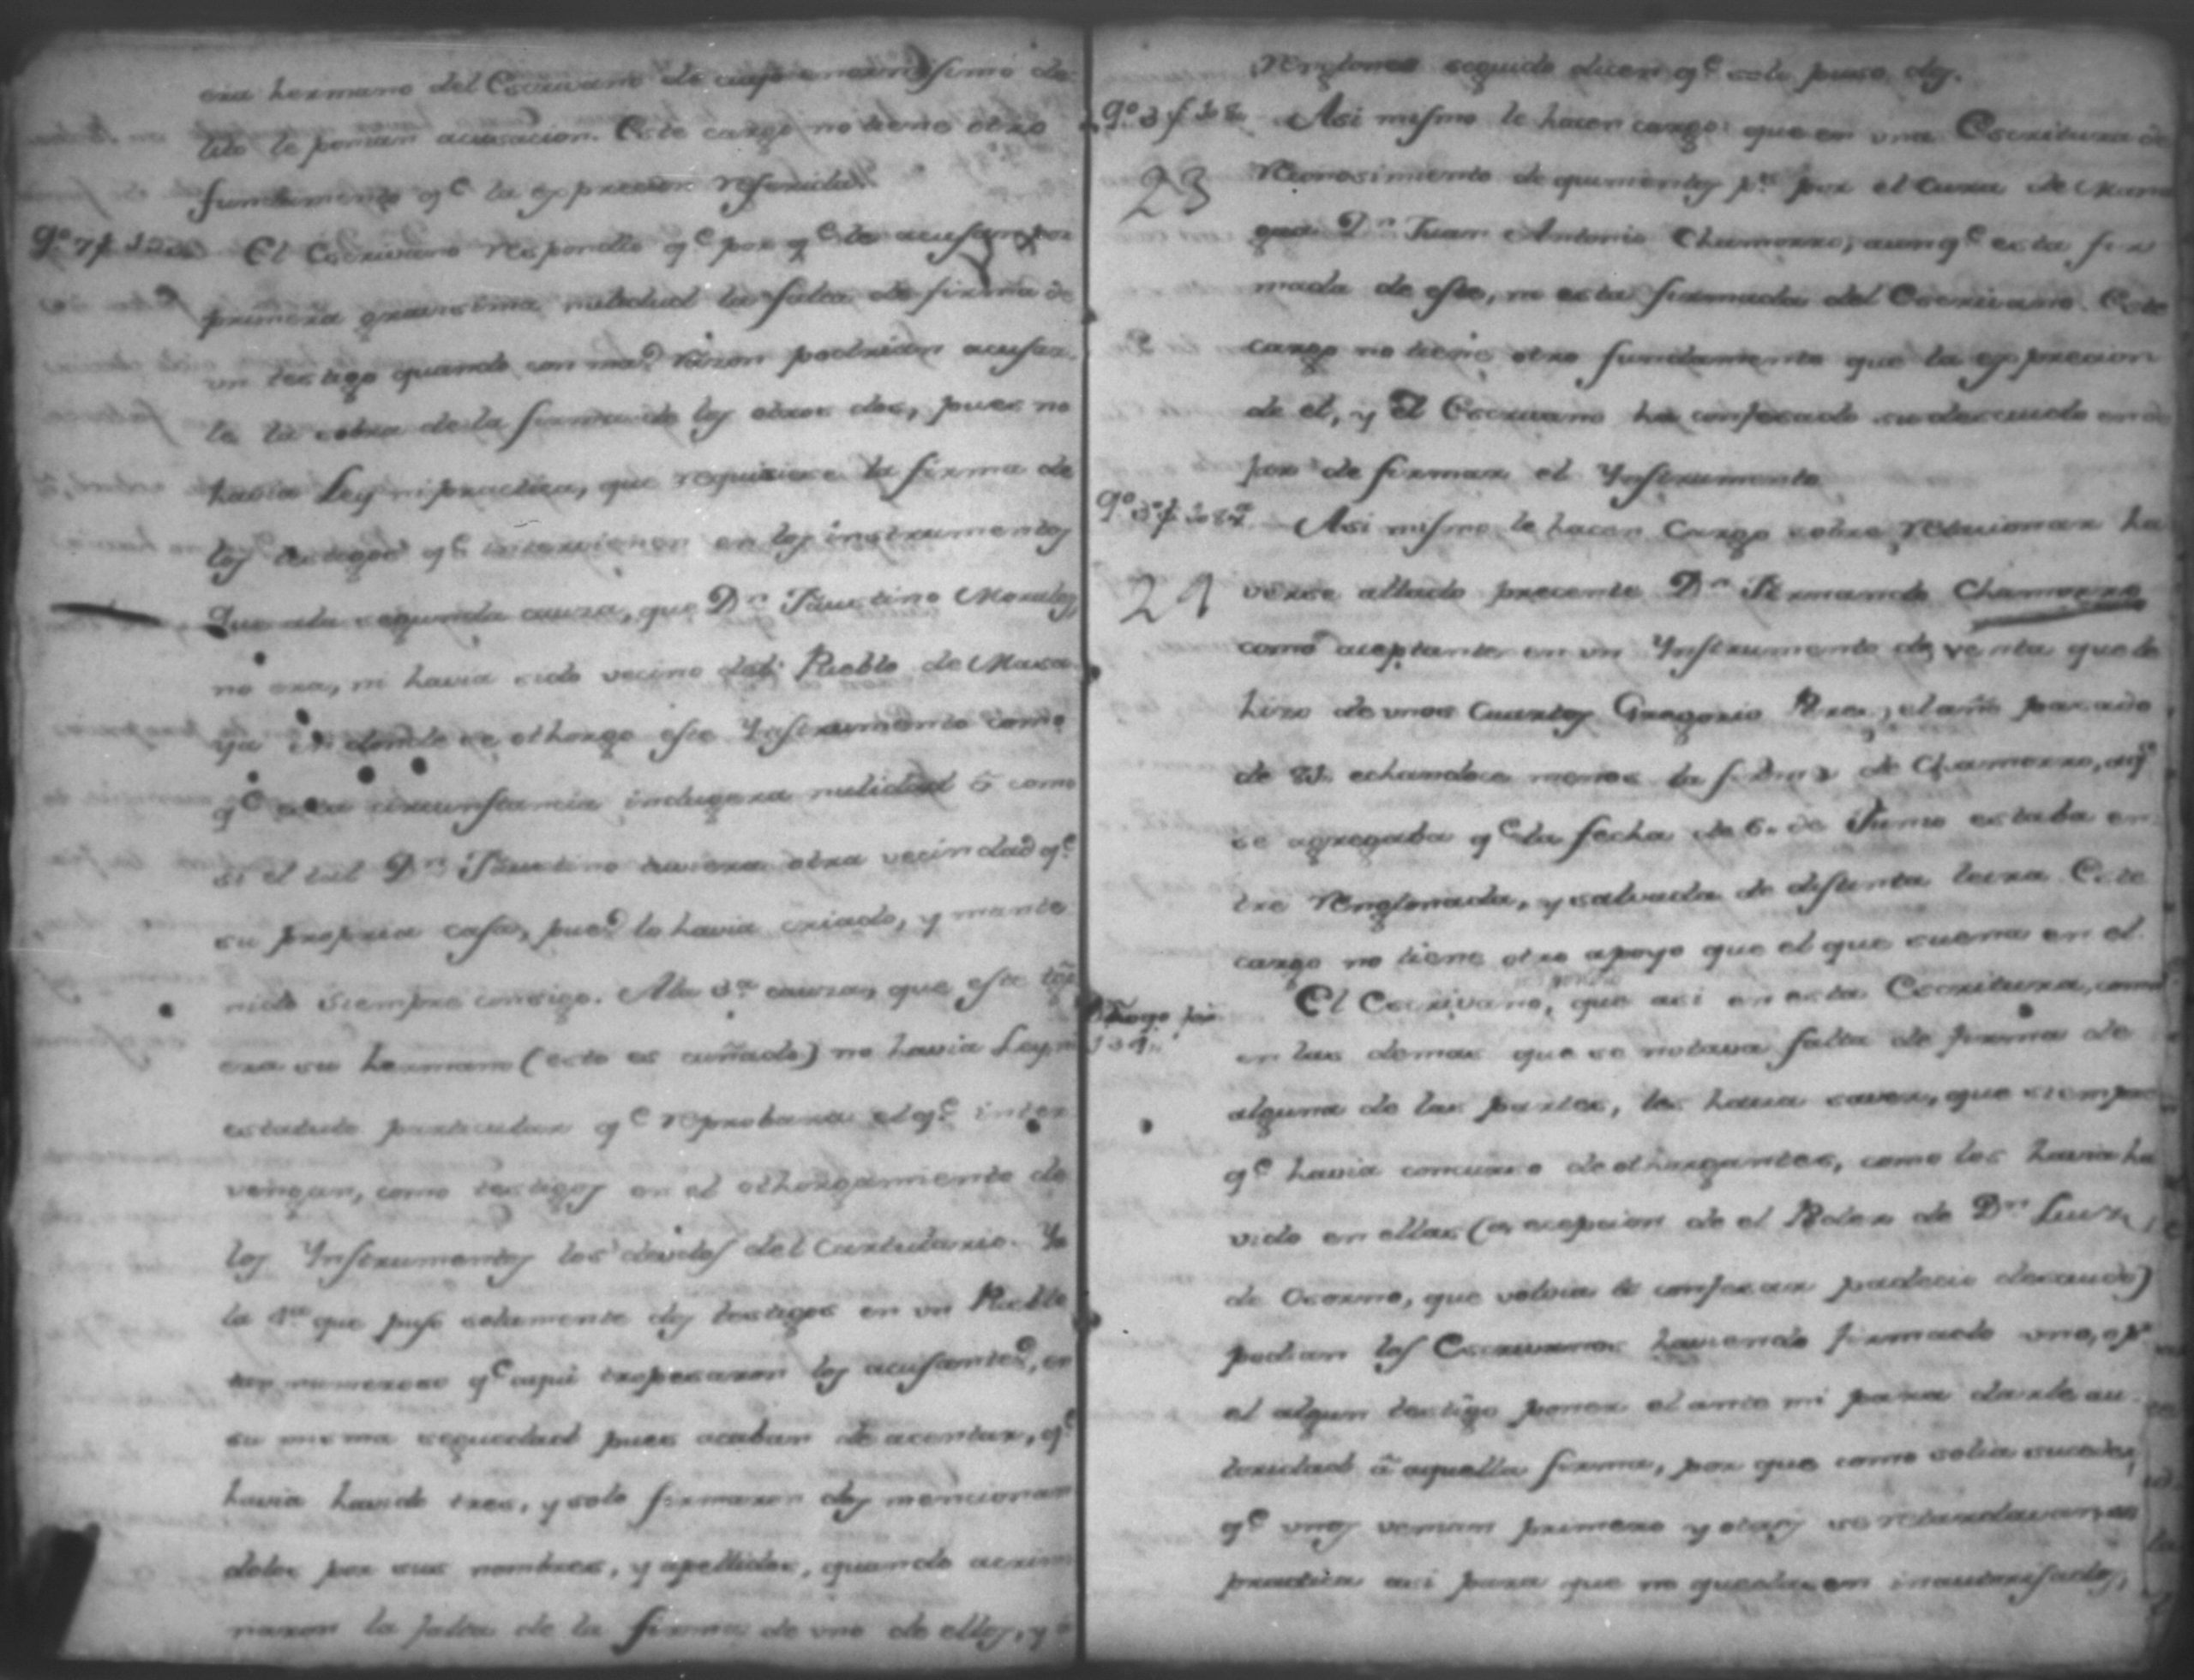 era hermano del Escrivano de cuyo enormisimo de
lito le ponian acusacion. Este cargo no tiene otro
fundamento q.e la expresion referida.
El Escrivano respondio q.e por q.e le acusaron por
primera gravisima nulidad la falta de firma de
un testigo quando con mas razon podrian acusar
le la sobra de la firma de los otros dos, pues no
havia Ley ni practica, que requiriese la firma de
los testigos q.e intervienen en los instrumentos
Que ala segunda causa, que D.n Faustino Morales,
no era, ni havia sido vecino del Pueblo de Masa
ya en donde se othorgo este Ynstrumento como
q.e esta circunstancia indugera nulidad ó como
si el tal D.n Faustino tuviera otra vecindad q.e
su propria casa, pues lo havia criado, y mante
nido siempre consigo. Ala 3.a causa, que este tgo
era su hermano (esto es cuñado) no havia Ley, ni
estatuto particular q.e reprobara el q.e inter
vengan, como testigos en el othorgamiento de
los Ynstrumentos los deudos del Cartulario. Ya
la 4.a que puso solamente dos testigos en un Pueblo
tan numeroso q.e aqui troperaron los acusantes, en
su misma ceguedad pues acaban de acentar, q.e
havia havido tres, y solo firmaron dos mencionan
dolos por sus nombres, y apellidos, quando acrimi
naron la falta de la firma de uno de ellos, y a
Renglones seguido dicen q.e solo puso dos.
Asi mismo le hacen cargo: que en una Escritura de
23 Reconosimiento de quinientos p.s por el Cura de Mana
gua D.n Juan Antonio Chamorro, aunq.e esta fir
mada de este, no esta firmada del Escrivano. Este
cargo no tiene otro fundamento que la expresion
de el, y El Escrivano ha confesado su descuido en
por de firmar el Ynstrumento
Asi mismo le hacen Cargo sobre Relacionar ha
24 verse allado precente D.n Fernando Chamorro
como aceptante en un Ynstrumento de venta que le
hizo de unos Cuartos Gregorio, el año pasado
de echandose menos la firma de Chamorro, aq.e
se agregaba q.e la fecha de 6. de Junio estaba en
tre Renglonada, y salvada de distinta letra. Este
cargo no tiene otro apoyo que el que suena en el.
El Escrivano, que asi en esta Escritura, como
en las demas que se notava falta de firma de
alguna de las partes, les hacia saver, que siempre
q.e havia concurso de othorgantes, como los havia ha
vido en ellas (a excepcion de el Poder de D.n Luis
de Osorno, que volvia á confesar padecio descuido)
podian los Escrivanos haviendo firmado uno, o p.r
el algun testigo poner el ante mi para darle au
toridad á aquella firma, por que como solia suceder,
q.e unos venian primero y otros se retardavan, se
practica asi para que no quedasen inautorisados,